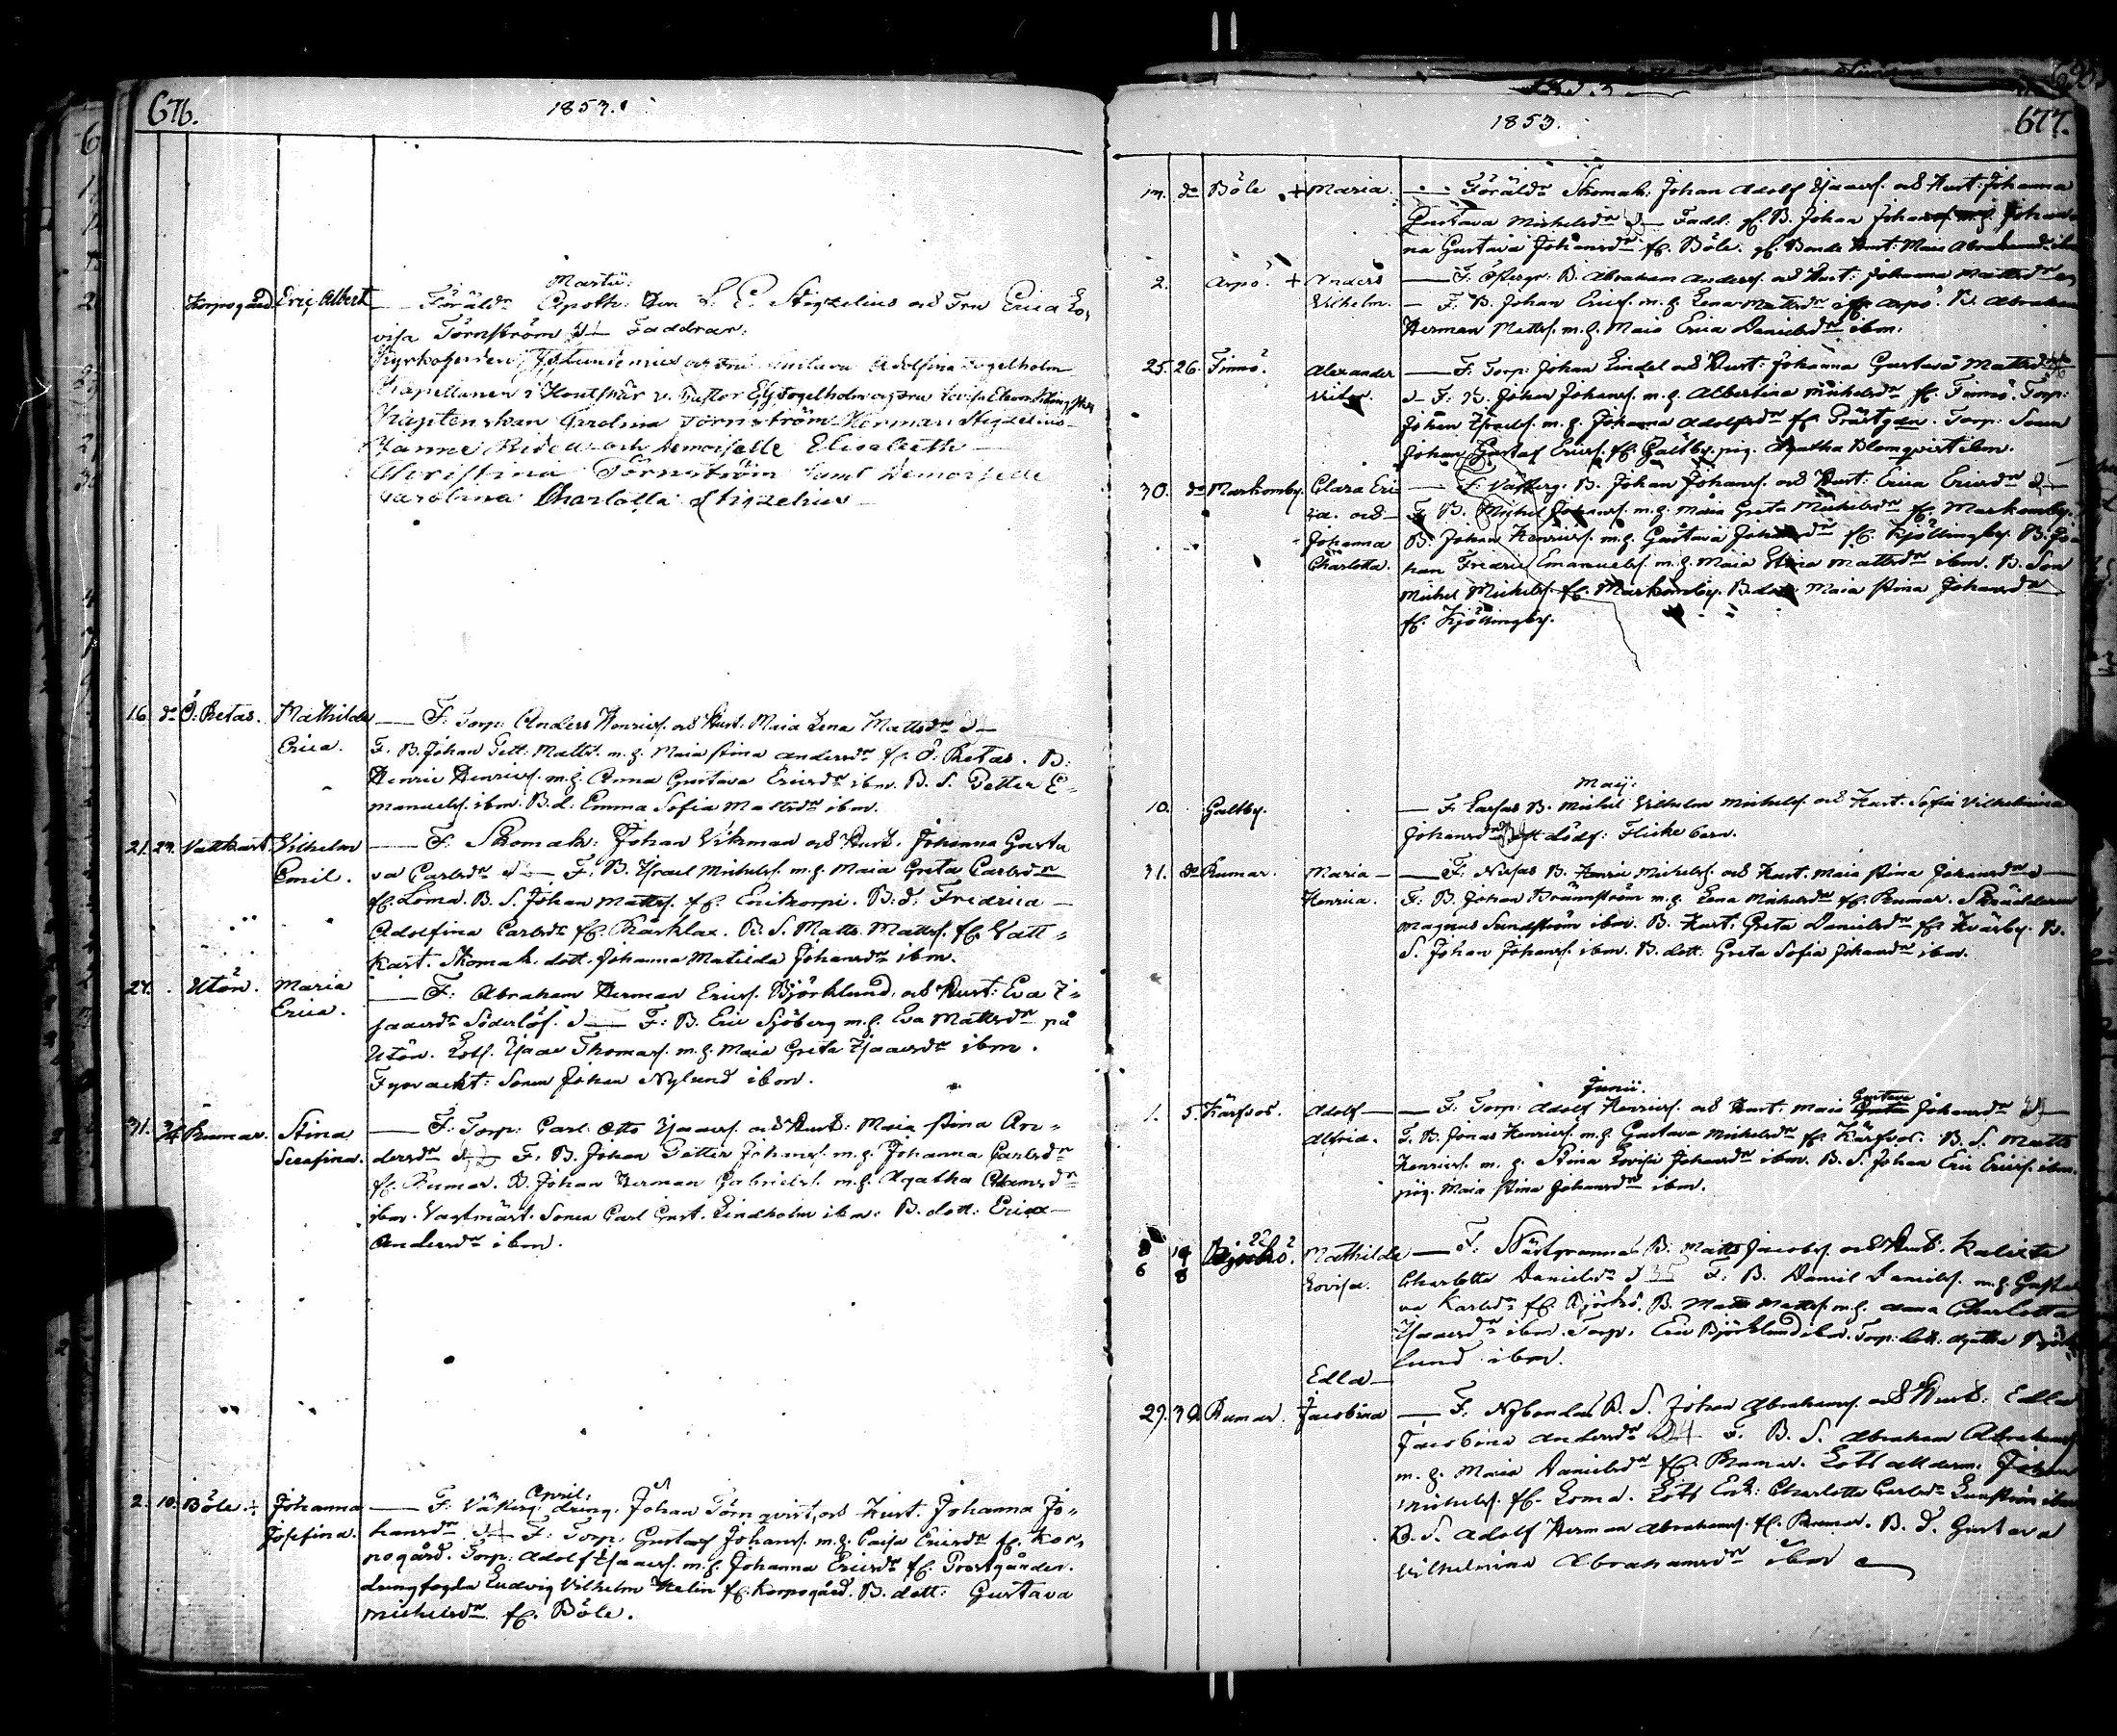 676.
1853.
Martii:
2 Korpogård Eric Albert — Föräldr Apoth: Herr L. E. Stigzelius och Fru Erica Lo-
visa Törnström — Faddrar:
Kyrkoherden och Fru Gustava Adolfina Fogelholm
Kapellanen i Houtskär v. Pastor Fogelholm och Fru
Kaptenskan Carolina Törnström Herman Stigzelius
Janne och demoiselle Elisabeth —
Christina Törnström samt Demoiselle
Carolina Charlotta Stigzelius —
16. do Ö: Retas. Mathilda — F. Torp: Anders Henrics. och Hust. Maia Lena Mattsdr
Erica. F. B. Johan Pett: Matts. m. h. Maia Stina Andersdr fr. Ö: Retas. B:
Henric Henrics. m. h. Anna Gustava Ericsdr ibm. B. S. Petter E=
manuels. ibm. B. d. Emma Sofia Mattsdr ibm.
21. 27. Vattkast. Vilhelm — F. Skomak: Johan Vikman och Hust. Johanna Gusta
Emil. va Carlsdr — F. B. Israel Michels. m. h. Maia Greta Carlsdr
fr. Lomä. B. S. Johan Matts. fr. Enikorpi. B. d. Fredrica —
Adolfina Carlsdr fr. Kärklax. B. S. Matts Matts. fr. Vatt=
kast. Skomak. dott. Johanna Matilda Johansdr ibm.
27. Utön. Maria — F: Abraham Herman Erics. Björklund, och Hust: Eva I=
Erica. saacsdr Söderlöf. — F: B. Eric Sjöberg m. h. Eva Mattsdr på
Utön. Lots. Isaac Thomas. m. h. Maia Greta Isaacsdr ibm.
Fyrvackt: Sonen Johan Nylund ibm.
31. Rumar. Stina — F: Torp: Carl Otto Isaacs. och Hust: Maia Stina An=
Serafina. dersdr F. B. Johan Petter Johans. m. h. Johanna Carlsdr
fr. Rumar. B. Johan Herman Gabriels. m. h. Agatha
ibm. Vagtmäst. Sonen Carl Gust. Lindholm ibm: B. dott: Erica —
Andersdr ibm.
April.
2. 10. Böle. + Johanna — F. dräng. Johan Törnqvist, och Hust. Johanna Jo=
Josefina. hansdr F: Torp: Gustaf Johans. m. h. Caisa Ericsdr fr. Kor-
pogård. Torp: Adolf Isaacs. m. h. Johanna Ericsdr fr. Prestgården.
drengfogda Ludvig Vilhelm Helin fr. Korpogård. B. dott: Gustava
Michelsdr fr. Böle.
1853.
677.
17. do Böle + Maria. — Föräldr Skomak: Johan Adolf Isaacs. och Hust: Johanna
Gustava Michelsdr — Fadd: fr. B. Johan Johans. m. h. Johan-
na Gustava Johansdr fr. Böle. fr. Bonde Hust: Maia ibm
2. Arpö. + Anders — F. B. Abraham Anders. och Hust: Johanna Mattsdr
Vilhelm. — F: B. Johan Erics. m. h. Lena Mattsdr fr. Arpö. B. Abraham
Herman Matts. m. h. Maia Erica Danielsdr ibm.
25. 26. Finnö. Alexander — F. Torp: Johan Lindel och Hust: Johanna Gustava Mattsdr
Victor. F: B. Johan Johans. m. h. Albertina Michelsdr fr. Finnö. Torp:
Johan Israels. m. h. Johanna Adolfsdr fr. Prästgdn. Torp: Sonen
Johan Gustaf Erics. fr. Galtby. pig. Agatha Blomqvist ibm.
30. do Markomby. Clara Eri — F. B. Johan Johans. och Hust: Erica Ericsdr
ca. och — F. B. Michel Johans. m. h. Maia Greta Michelsdr fr. Markomby.
Johanna B. Johan Henrics. m. h. Gustava Johansdr fr. Kjöllingby. B. Jo-
Charlotta. han Fredric Emanuels. m. h. Maia Stina Mattsdr ibm. B. Son
Michel Michels. fr. Markomby. B. dott. Maia Stina Johansdr
fr. Kjöllingby.
Maij:
10. Galtby. — F. B. Michel Vilhelm Michels. och Hust. Sofia Vilhelmina
Johansdr ett dödf: Flicke barn.
31. do Rumar. Maria — — F: B. Henric Michels. och Hust. Maia Stina Johansdr —
Henrica. F: B. Johan Brännström m. h. Lena Michelsdr fr. Rumar. Skräddaren
Magnus Sundström ibm. B. Hust: Greta Danielsdr fr. B.
S. Johan Johans. ibm. B. dott: Greta Sofia Johansdr ibm.
Junii.
Gustava
1. 5. Kärfvos. Adolf — — F. Torp: Adolf Henrics. och Hust. Maia Greta Johansdr —
Alfrid. F. B. Jonas Henrics. m. h. Gustava Michelsdr fr. Kärfvos. B. S. Matts
Henrics. m. h. Stina Lovisa Johansdr ibm. B. S. Johan Eric Erics. ibm.
pig. Maia Stina Johansdr ibm.
8 19 Björkö. Mathilda — F. B. Matts Jacobs. och Hust. Kalixta
6 8 Lovisa. Charlotta Danielsdr 35 F: B. Daniel Daniels. m. h. Gusta
va Karlsdr fr. Björkö. B. Matts Matts. m. h. Anna Charlotta
Isaacsdr ibm. Torp. Eric Björklund ibm. Torp: dott: Agatha Björk
lund ibm.
Edla —
29. 30. Rumar. Jacobina — F. Nybondas B. S. Johan Abrahams. och Hust: Edla
Jacobina Andersdr 24 F. B. S. Abraham Abrahams.
m. h. Maia Danielsdr fr. Rumar. Lots ålderm. Johan
Michels. fr. Lomä. Lots Enk: Charlotta Carlsdr ibm
B. S. Adolf Herman Abrahams. fr. Rumar. B. d. Gustava
Vilhelmina Abrahamsdr ibm